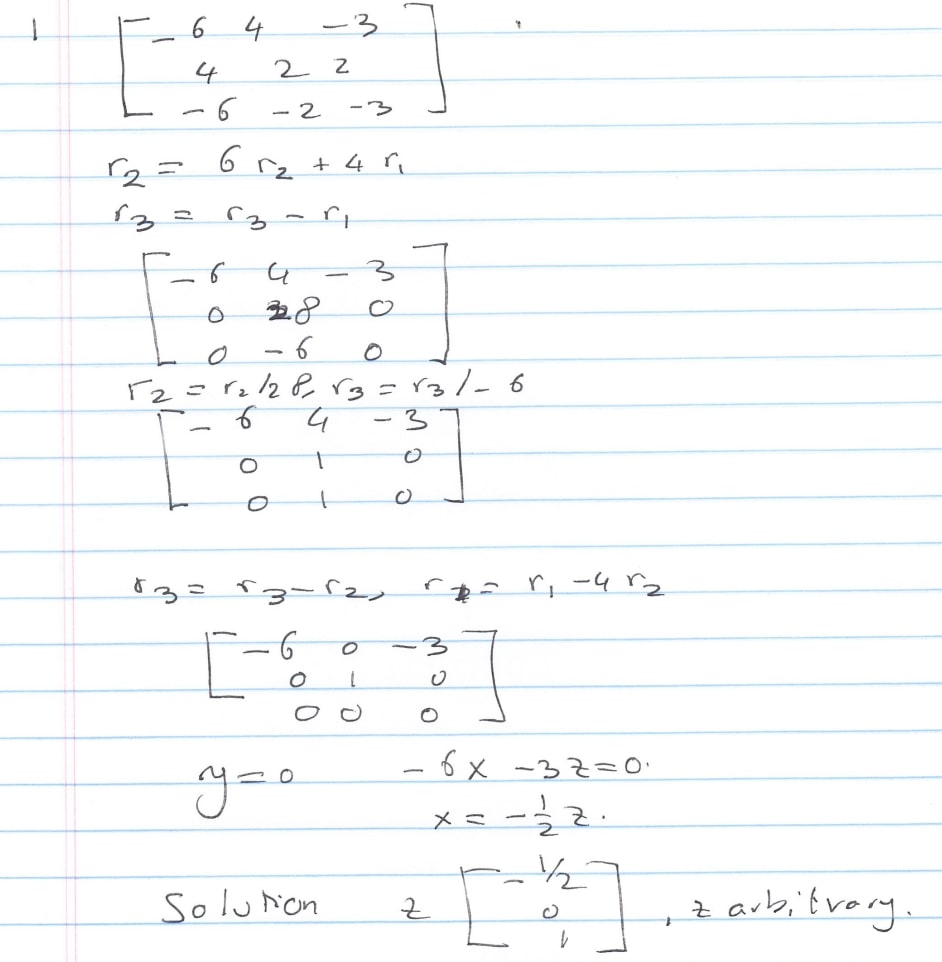 1 [ -6 4 -3
4 2 2
-6 -2 -3 ]
r₂ = 6 r₂ + 4 r₁
r₃ = r₃ - r₁
[ -6 4 -3
0 28 0
0 -6 0 ]
r₂ = r₂/28, r₃ = r₃/-6
[ -6 4 -3
0 1 0
0 1 0 ]
r₃ = r₃-r₂, r₁ = r₁ -4 r₂
[ -6 0 -3
0 1 0
0 0 0 ]
y=0 -6x -3z=0.
x = -1/2 z.
Solution z [ -1/2
0
1 ] , z arbitrary.